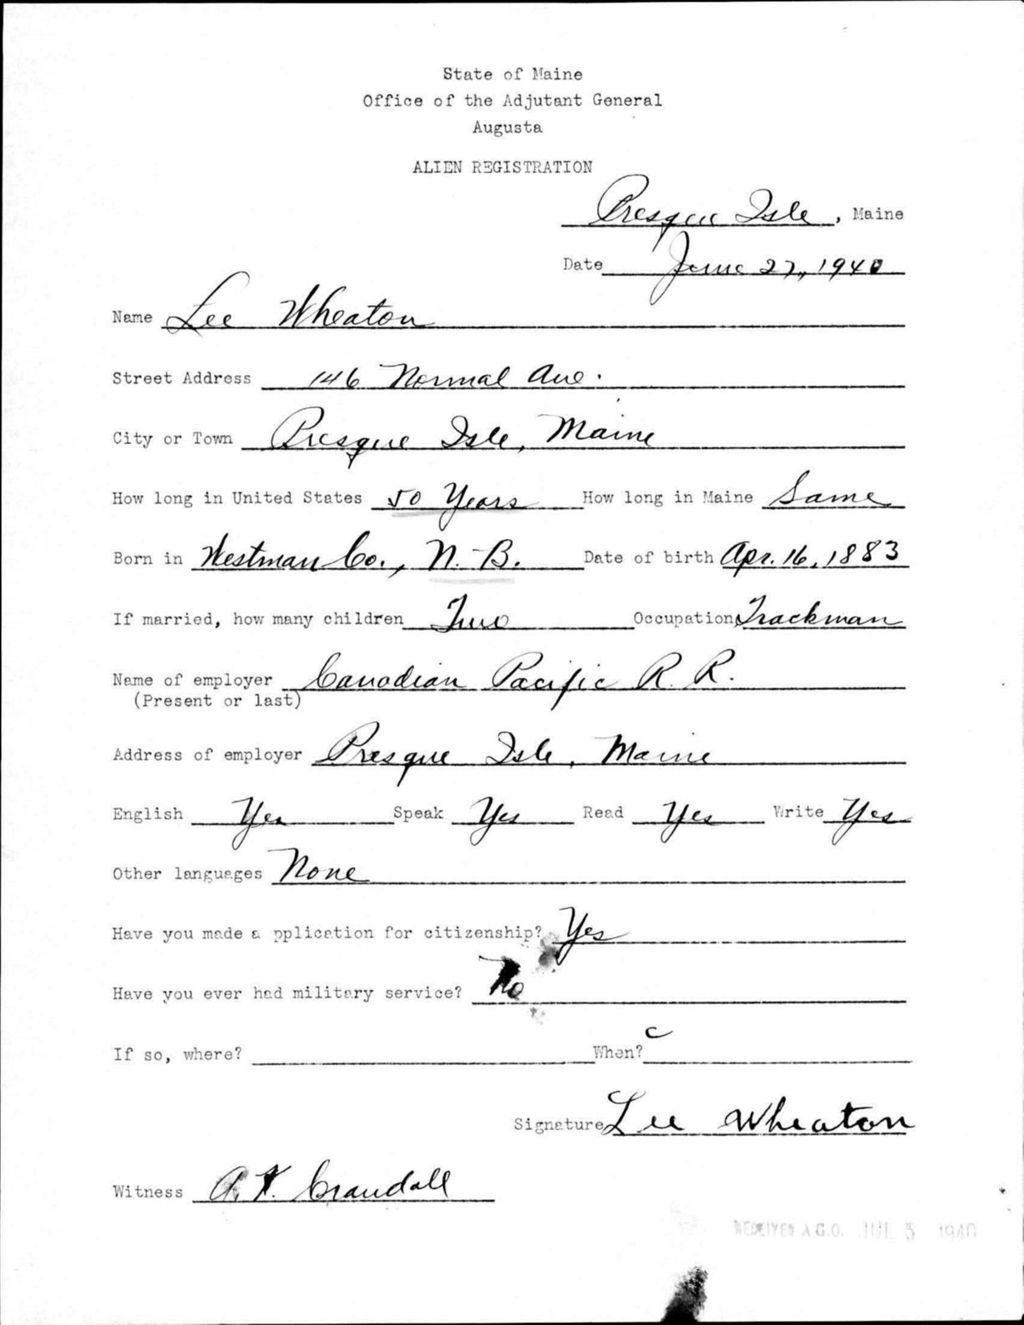 State of Maine
Office of the Adjutant General
Augusta
ALIEN REGISTRATION
Presque Isle, Maine
Date June 27, 1940
Name Lee Wheaton
Street Address 146 Normal Ave.
City or Town Presque Isle, Maine
How long in United States 50 Years How long in Maine Same
Born in Westman Co., N. B. Date of birth Apr. 16, 1883
If married, how many children Two Occupation Trackman
Name of employer Canadian Pacific R. R.
(Present or last)
Address of employer Presque Isle, Maine
English Yes Speak Yes Read Yes Write Yes
Other languages None
Have you made a pplication for citizenship? Yes
Have you ever had military service? No
If so, where? When?
Signature Lee Wheaton
Witness Crandall
RECEIVED A.G.O. JUL 3 1940